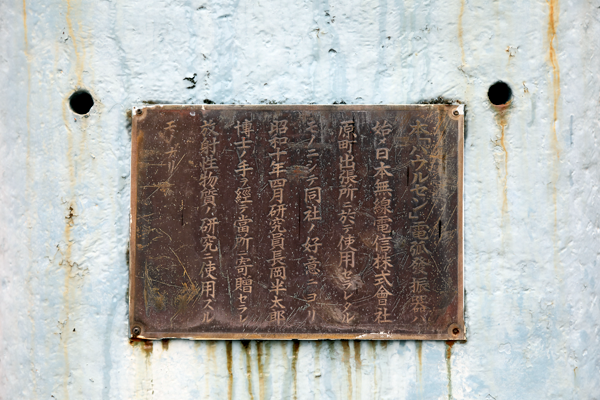 本「パウルセン」電弧發振器ハ
始メ日本無線電信株式會社
原町出張所ニ於テ使用セラレタル
モノニシテ同社ノ好意ニヨリ
昭和十年四月研究員長岡半太郎
博士ノ手ヲ經テ當所ニ寄贈セラレ
放射性物質ノ研究ニ使用スル
モノナリ